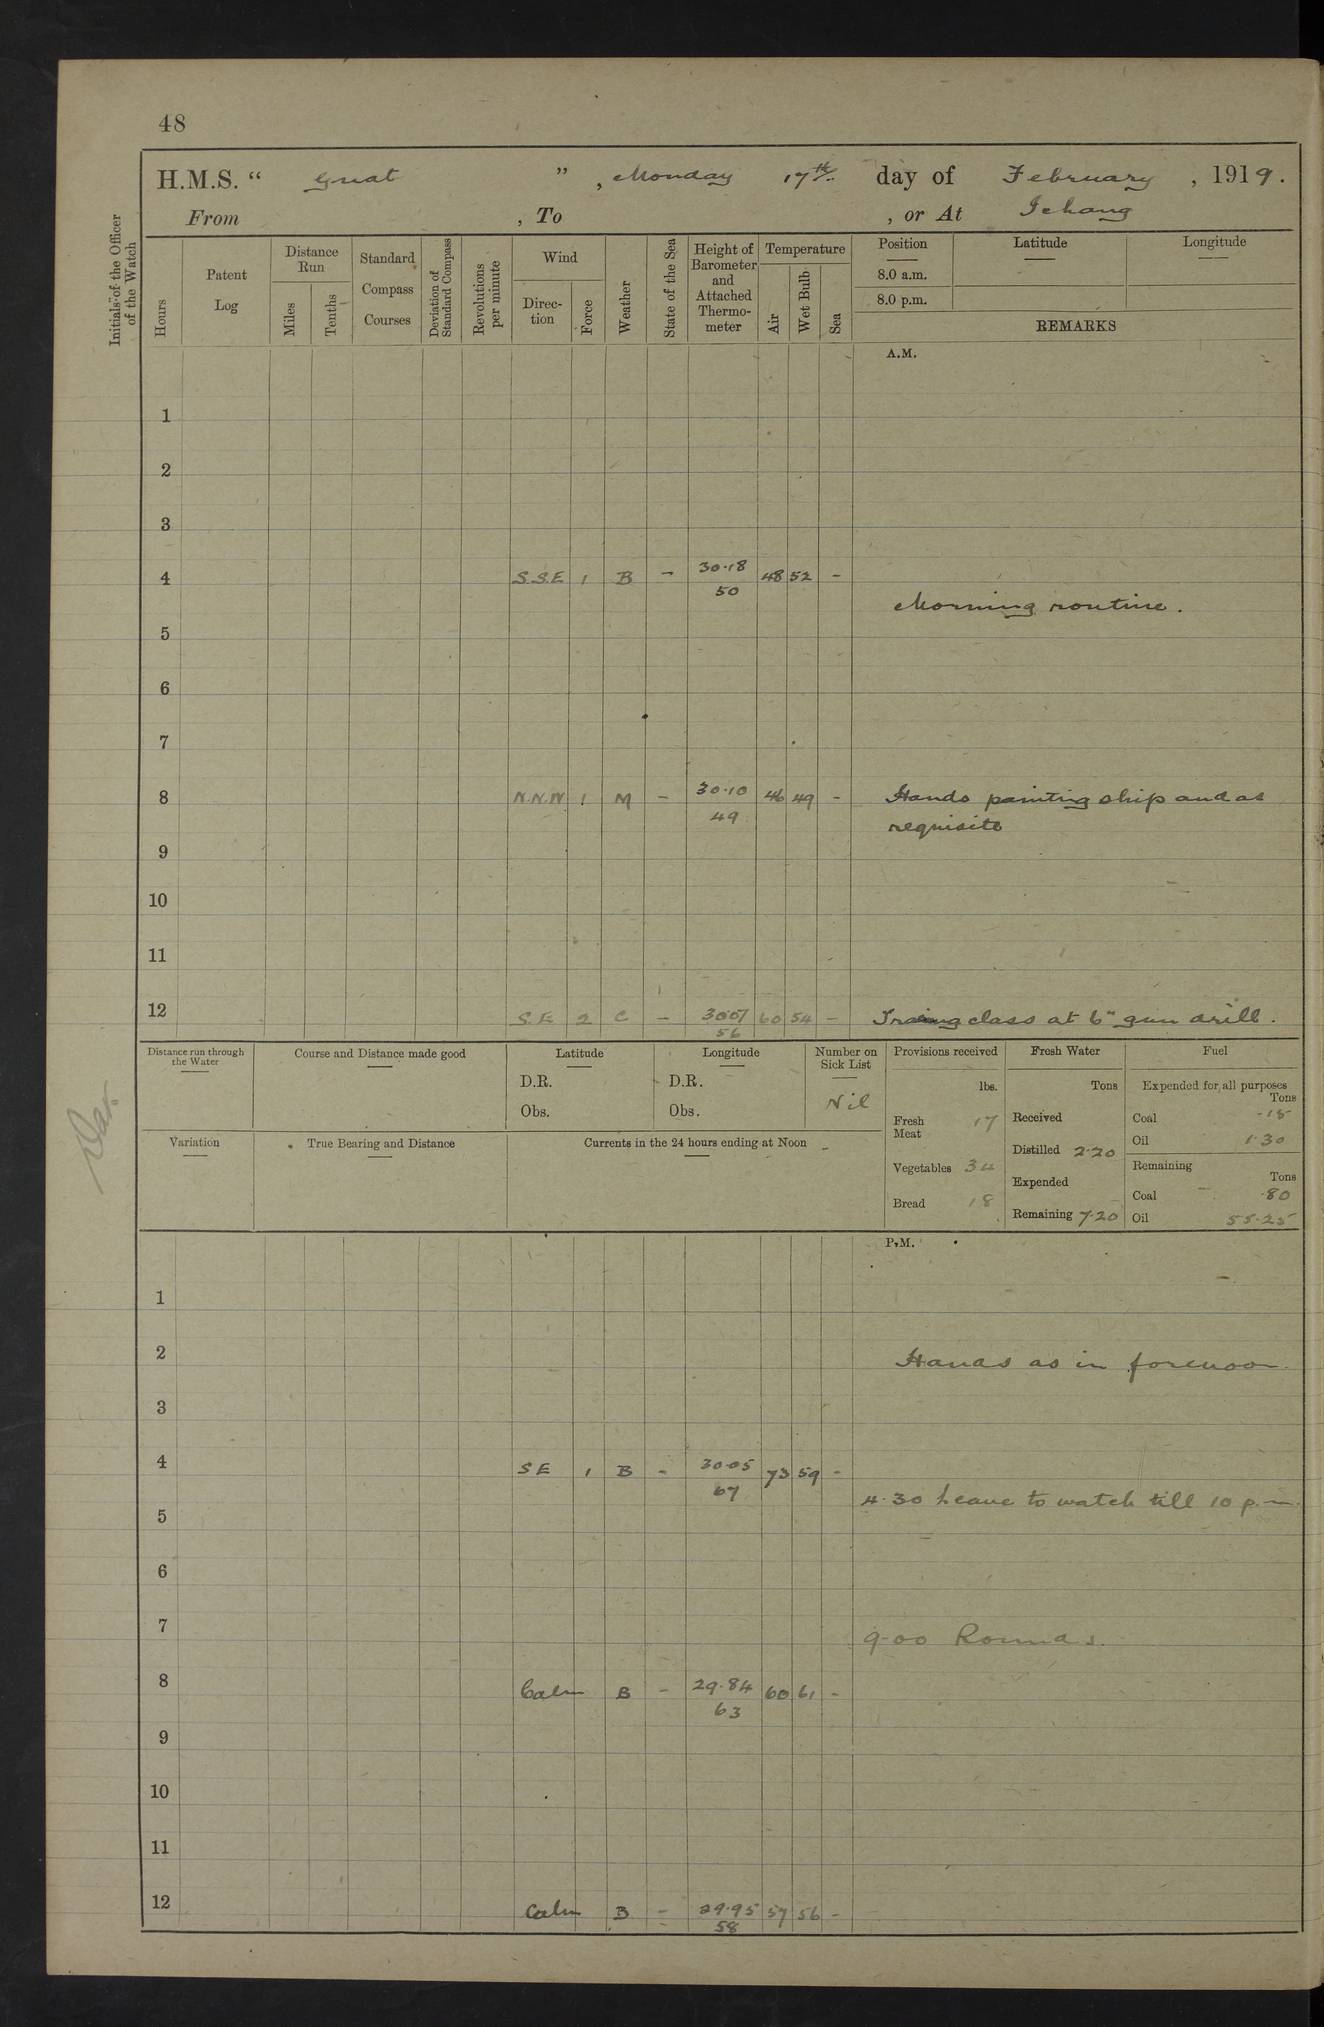 48
H.M.S. “ Gnat ” , Monday 17th day of February , 1919.
From , To , or At Ichang
Initials of the Officer of the Watch
Hours
Patent Log
Distance Run
Miles
Tenths
Standard Compass Courses
Deviation of Standard Compass
Revolutions per minute
Wind
Direc-tion
Force
Weather
State of the Sea
Height of Barometer and Attached Thermo-meter
Temperature
Air
Wet Bulb
Sea
Position Latitude Longitude
8.0 a.m.
8.0 p.m.
REMARKS
A.M.
1
2
3
4 S.S.E 1 B - 30.18 48 52 -
50
Morning routine.
5
6
7
8 N.N.W 1 M - 30.10 46 49 - Hands painting ship and as
49 requisite
9
10
11
12 S.E 2 C - 3007 60 54 - Training class at 6" gun drill.
56
Distance run through the Water
Course and Distance made good
Latitude
D.R.
Obs.
Longitude
D.R.
Obs.
Number on Sick List
Nil
Provisions received
lbs.
Fresh Meat 17
Vegetables 34
Bread 18
Fresh Water
Tons
Received
Distilled 2.20
Expended
Remaining 7.20
Fuel
Expended for all purposes
Tons
Coal .15
Oil 1.30
Remaining
Tons
Coal .80
Oil 55.25
Variation
True Bearing and Distance
Currents in the 24 hours ending at Noon
P.M.
1
2 Hands as in forenoon
3
4 SE 1 B - 30.05 73 59 -
67
4.30 Leave to watch till 10 p.m.
5
6
7 9.00 Rounds.
8 Calm B - 29.84 60 61 -
63
9
10
11
12 Calm B - 29.95 57 56 -
58